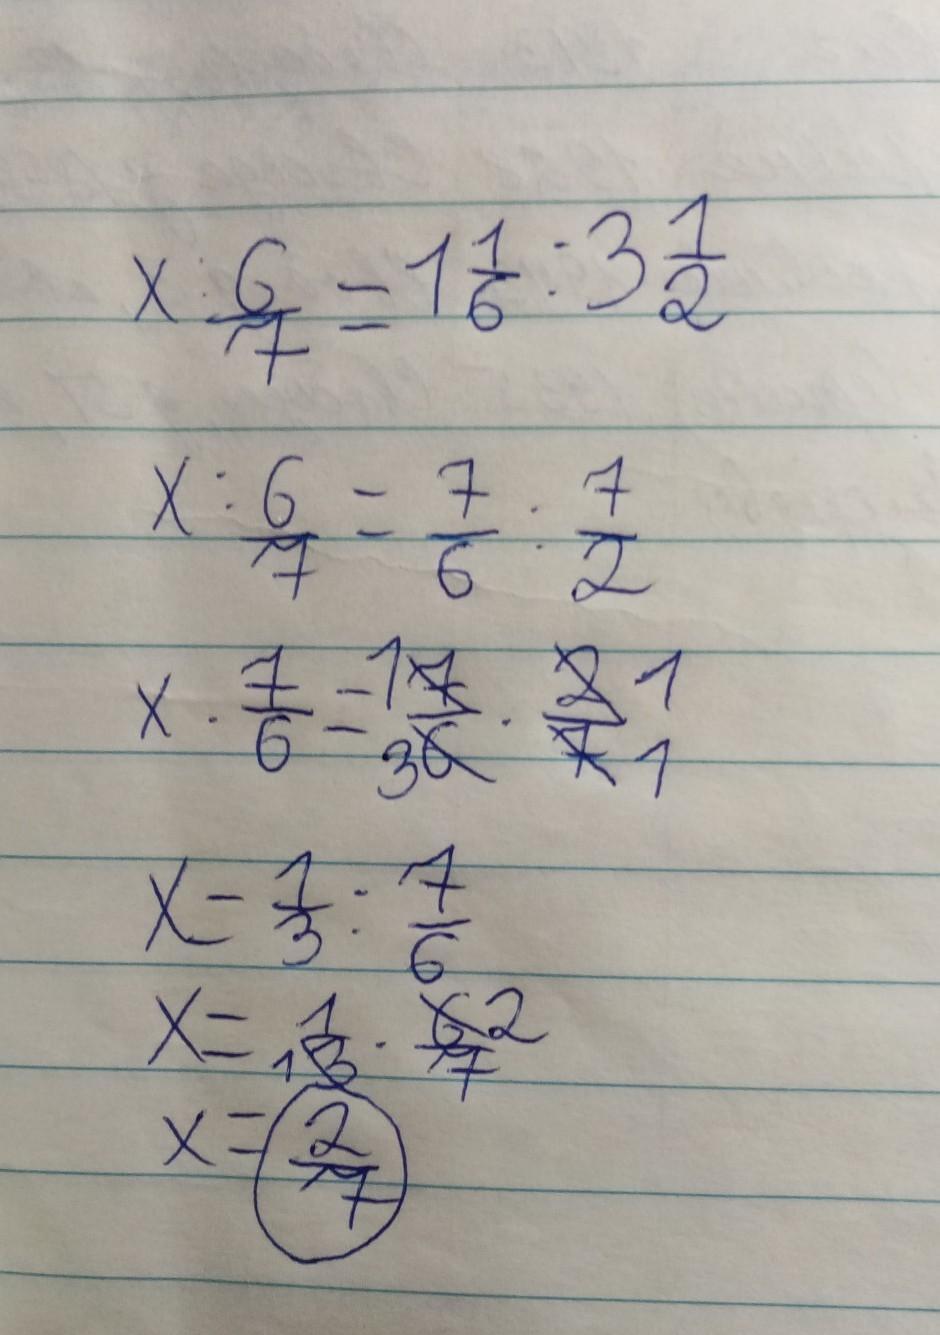 x : 6/7 = 1 1/6 : 3 1/2
x : 6/7 = 7/6 : 7/2
x · 7/6 = 1 7/6 3 · 2/7 1 1
x = 1/3 : 7/6
x = 1/3 1 · 6/7 2
x = 2/7